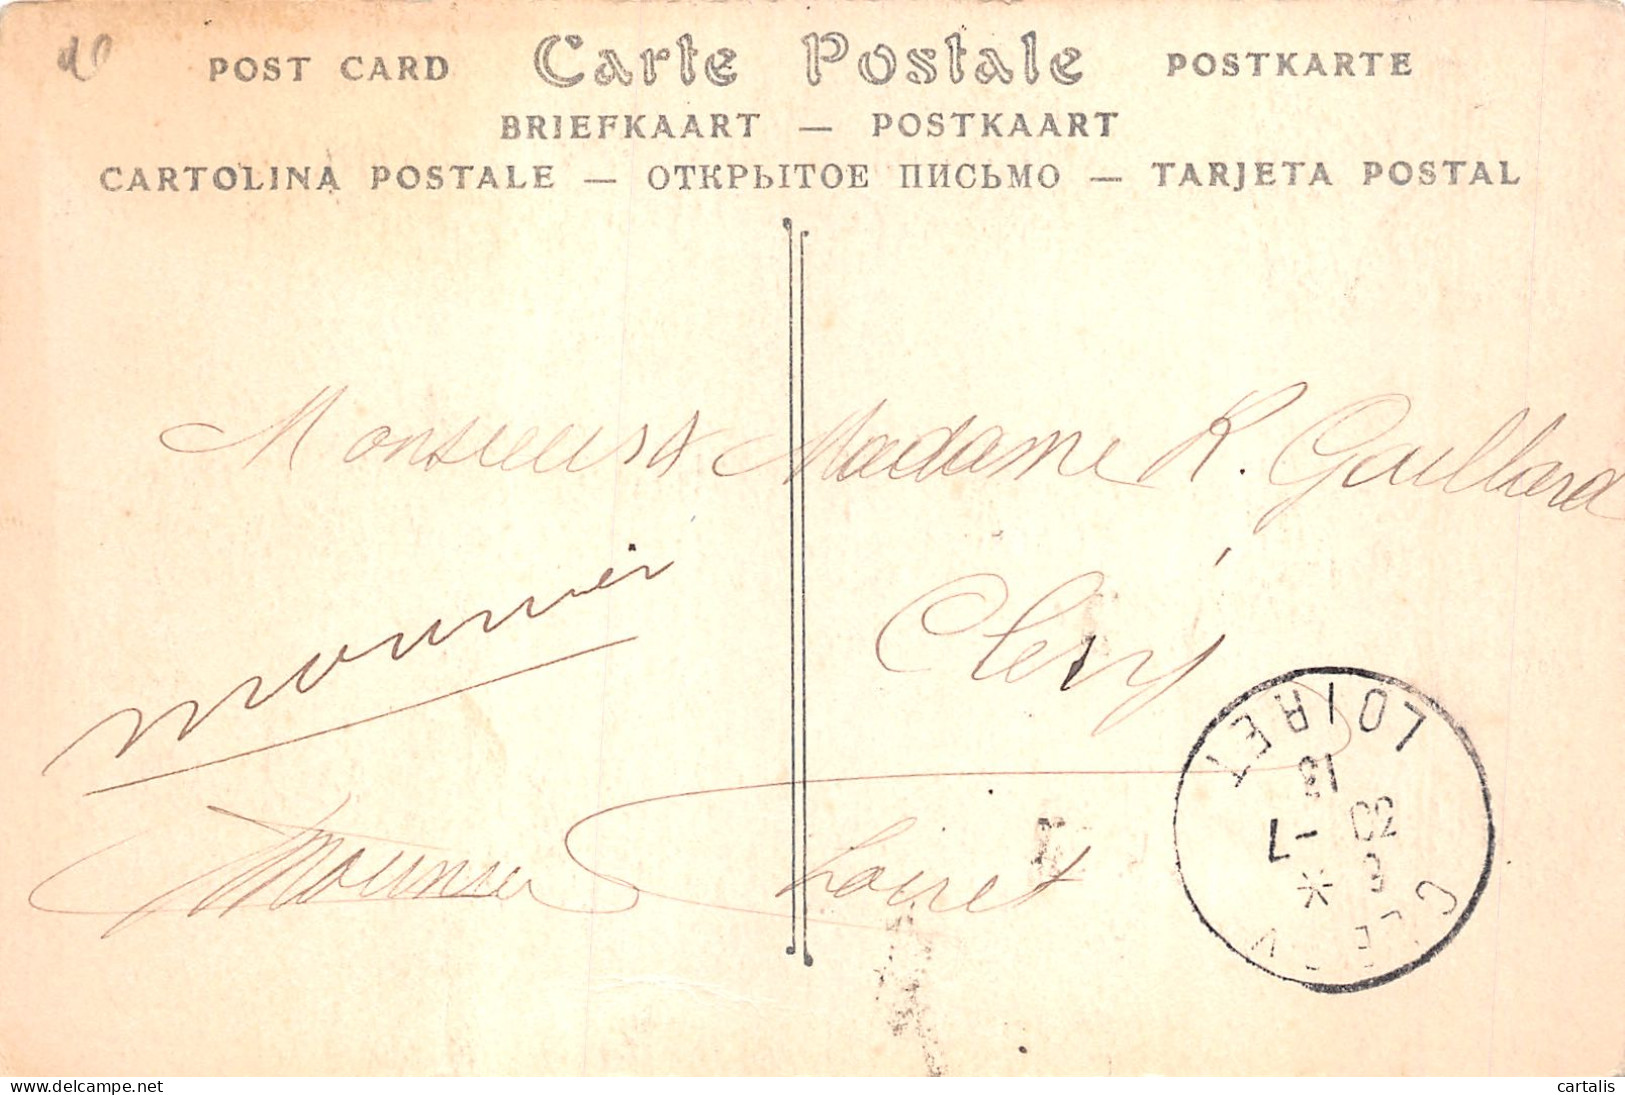 POST CARD Carte Postale POSTKARTE
BRIEFKAART — POSTKAART
CARTOLINA POSTALE — ОТКРЫТОЕ ПИСЬМО — TARJETA POSTAL
Monsieur & Madame R. Gaillard
Cléry
Loiret
Mounier
Mounier
LOIRET
13
7 -
*
delcampe.net
cartalis